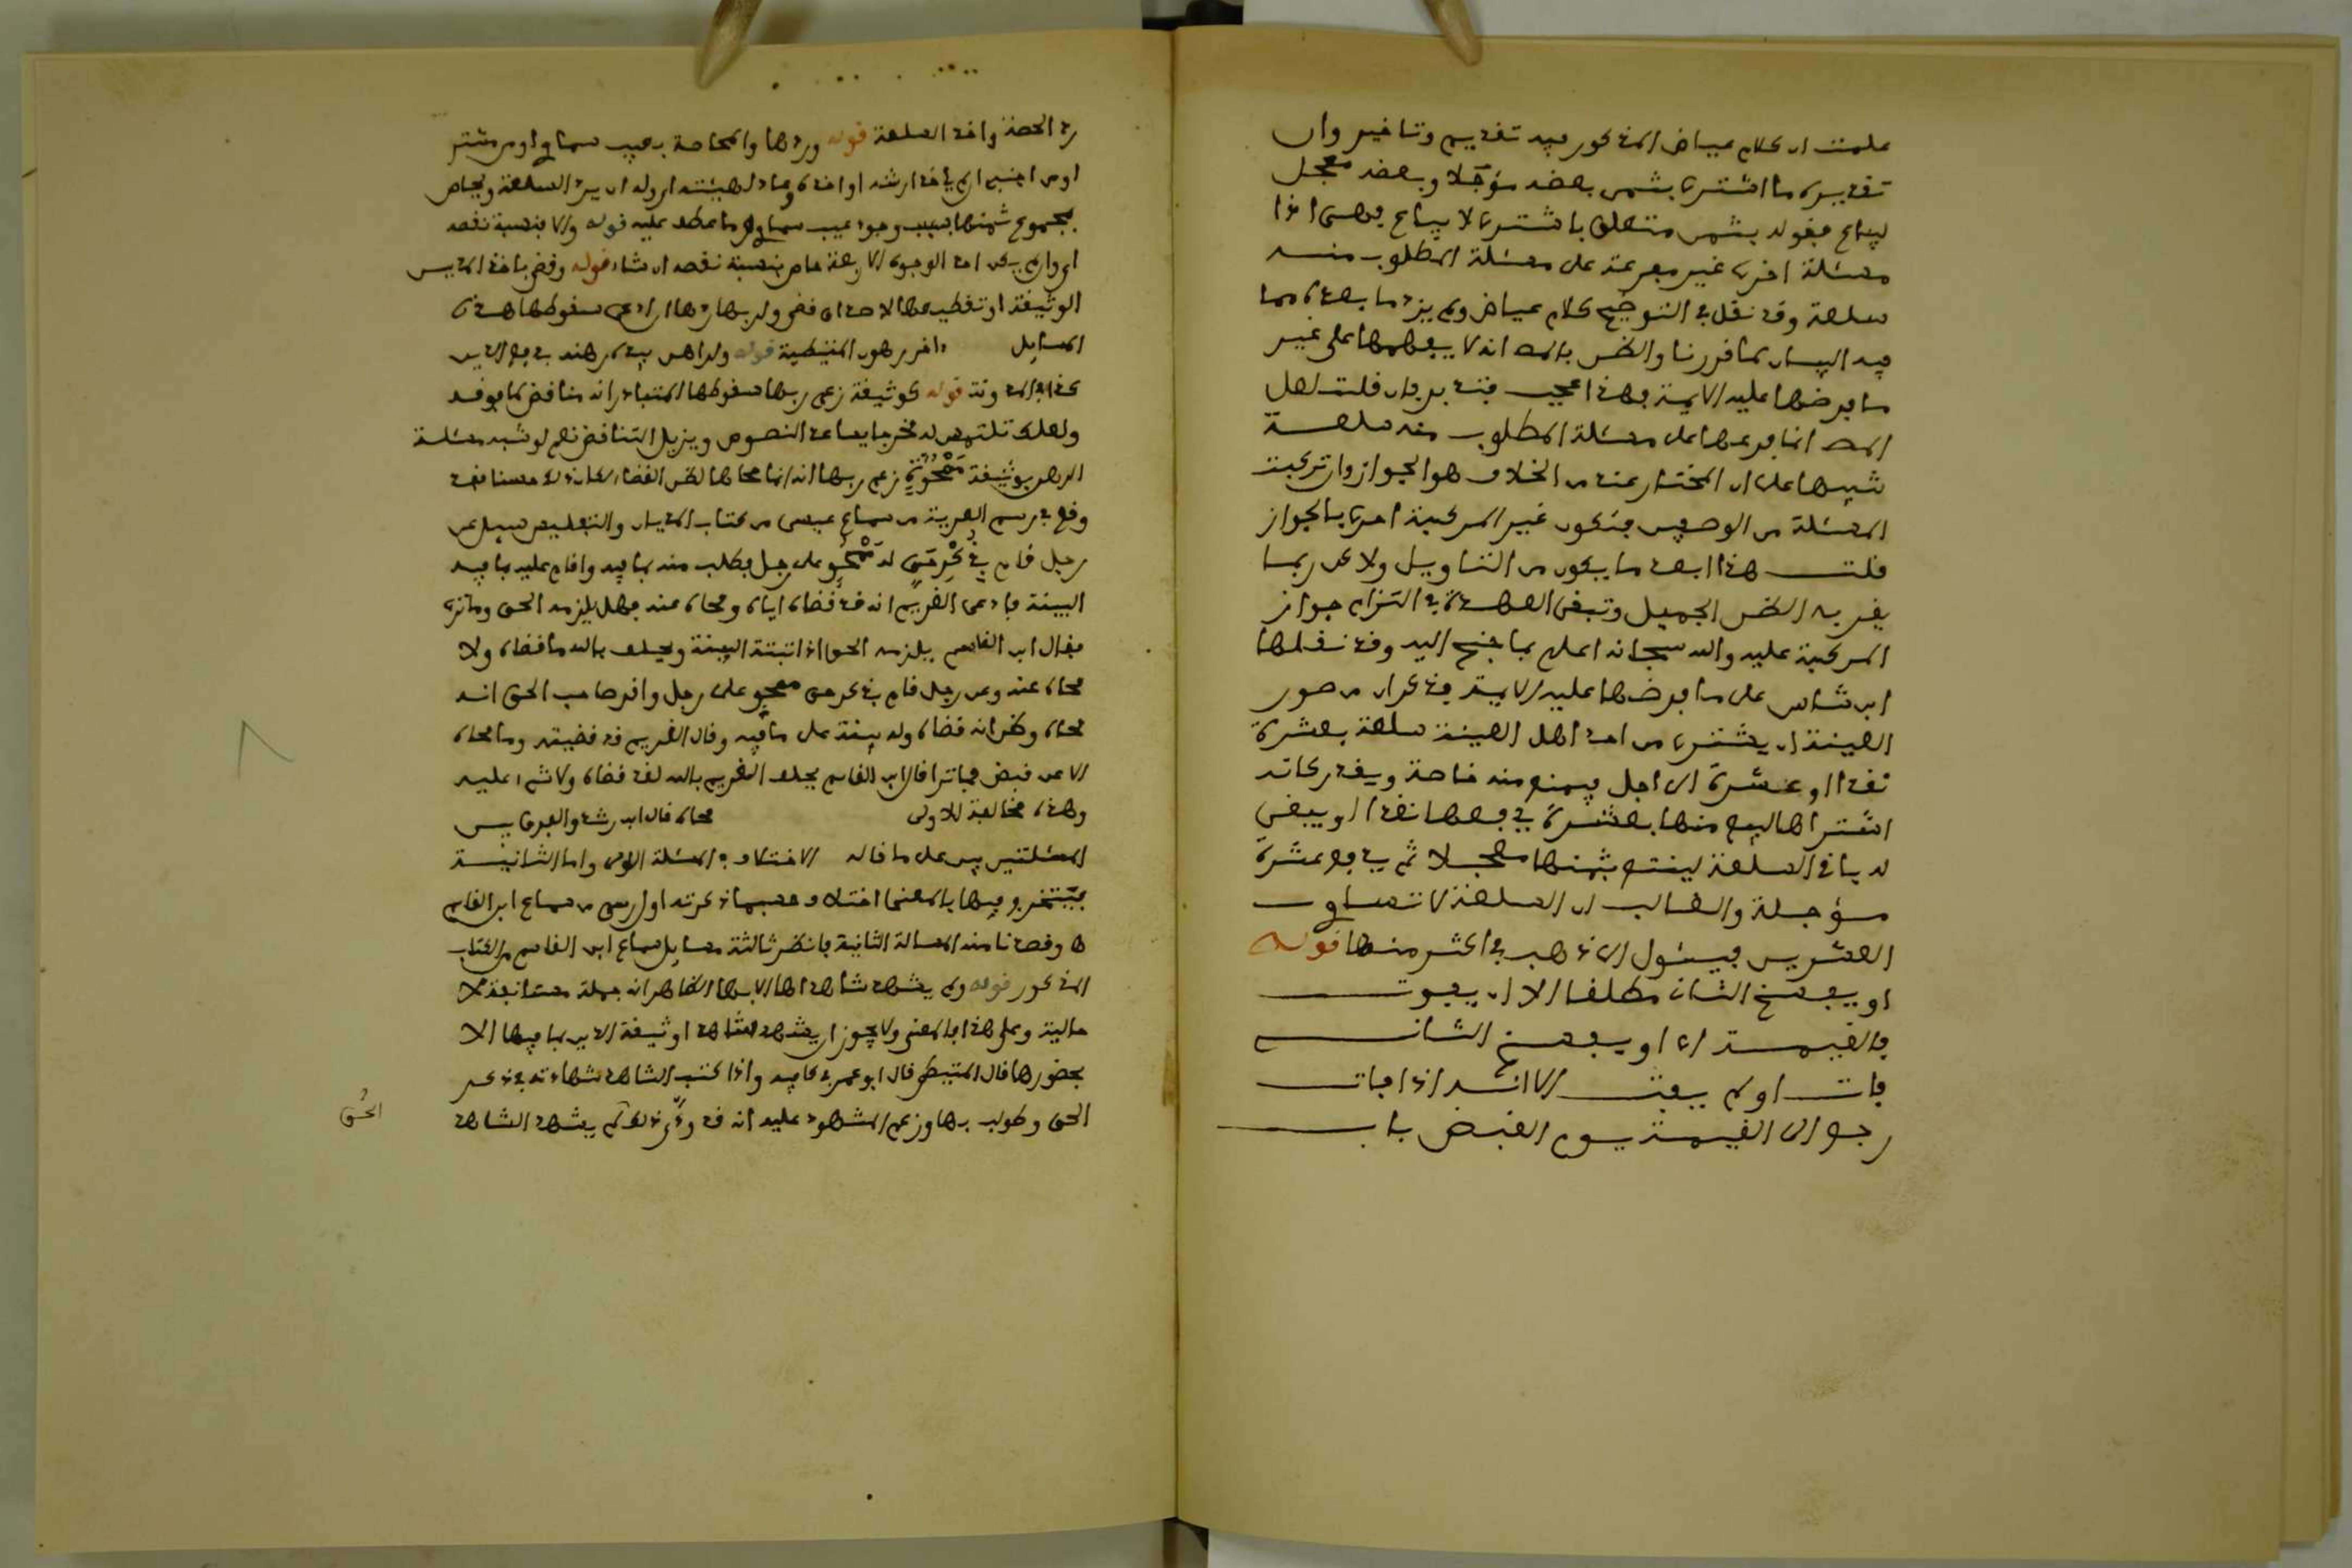 علمت ان كلام عياض المذكور فيه تقديم وتاخير وان
تقديره ما اشترى بثمن بعضه مؤجلا وبعضه معجل
ليباع فقوله بثمن متعلق باشترى لا بيباع فهي اذا
مسئلة اخرى غير مفرعة على مسئلة المطلوب منه
سلعة وقد نقل في التوضيح كلام عياض ولم يزد ما بعده مما
فيه البيان كما قررنا والظن بالمص انه لا يفهمها على غير
ما فرضها عليه الايمة فهذا عجب فتدبر فان قلت لعل
المص انما فرعها على مسئلة المطلوب منه سلعة
تنبيها على ان المختار عنده من الخلاف هو الجواز وان تركبت
المسئلة من الوصفين فتكون غير المركبة احرى بالجواز
قلت هذا ابعد ما يكون من التاويل ولاكن ربما
يقربه الظن الجميل وتبقى العهدة في التزام جواز
المركبة عليه والله سبحانه اعلم بما جنح اليه وقد نقلها
ابن شاس على ما فرضها عليه الايمة فذكر ان من صور
العينة ان يشترى من احد اهل العينة سلعة بعشرة
نقدا وعشرة الى اجل فيمنع منه خاصة ويقدر كانه
اشتراها ليبيع منها بعشرة يدفعها نقدا ويبقى
له باقي السلعة لينتفع بثمنها معجلا ثم يدفع عشرة
مؤجلة والغالب ان السلعة لا تساوي
العشرين فيئول الى ذهب في اكثر منها قوله
او يفسخ الثاني مطلقا الا ان يفوت
فالقيمة اي او يفسخ الثاني
فات او لم يفت الا انه اذا فات
رجع الى القيمة يوم القبض باب
رد الحصة واخذ السلعة قوله وردها والمحاصة بعيب سماوي او من مشتر
او من اجنبي لم ياخذ ارشه او اخذه وعاد لهيئته اي وله ان يرد السلعة ويحاص
بمجموع ثمنها بسبب وجود عيب سماوي وما عطف عليه قوله والا فبنسبة نقصه
اي وان لم يكن احد الوجوه الاربعة حاص بنسبة نقصه ان شاء قوله وقضي باخذ المدين
الوثيقة او تقطيعها لا صداق قضي ولربها ردها ان ادعى سقوطها هذه
المسايل واخر رهون المتيطية قوله ولراهن بيده رهنه بدفع الدين
كذا في المدونة قوله كوثيقة زعم ربها سقوطها المتبادر انه مناقض لما فوقه
ولعلك تلتمس له مخرجا يساعد النصوص ويزيل التناقض نعم لو شبه مسئلة
الرهن بوثيقة ممحوة زعم ربها انه انما محاها لظن القضاء لكان ذلك حسنا فقد
وقع في رسم العرية من سماع عيسى من كتاب المديان والتفليس سيل عن
رجل قام بذكر حق له ممحو على رجل فطلب منه بما فيه واقام عليه بما فيه
البينة فادعى الغريم انه قد قضاه اياه ومحاه عنه فهل يلزمه الحق وما ترى
فقال ابن القاسم يلزمه الحق اذا اثبتته البينة ويحلف بالله ما قضاه ولا
محاه عنه وعن رجل قام بذكر حق ممحو على رجل واقر صاحب الحق انه
محاه وظن انه قضاه وله بينة على ما فيه وقال الغريم قد قضيته وما محاه
الا عن قبض فما ترى قال ابن القاسم يحلف الغريم بالله لقد قضاه ولا شيء عليه
وهذه مخالفة للاولى محاه قال ابن رشد والفرق بين
المسئلتين بين على ما قاله الاختلاف في المسئلة الاولى واما الثانية
فيتخرج فيها بالمعنى اختلاف حسبما ذكرته اول رسم من سماع ابن القاسم
ها وقصدنا منه المسالة الثانية فانظر ثالثة مسايل سماع ابن القاسم من الكتاب
المذكور قوله ولم يشهد شاهدها الا بها الظاهر انه جملة مستانفة لا
حالية وعلى هذا فالمعنى ولا يجوز ان يشهد شاهدا وثيقة الدين بما فيها الا
بحضورها قال المتيطي قال ابو عمر في كافيه واذا كتب الشاهد شهادته في ذكر
الحق وطولب بها وزعم المشهود عليه انه قد ودى ذلك لم يشهد الشاهد
الحق